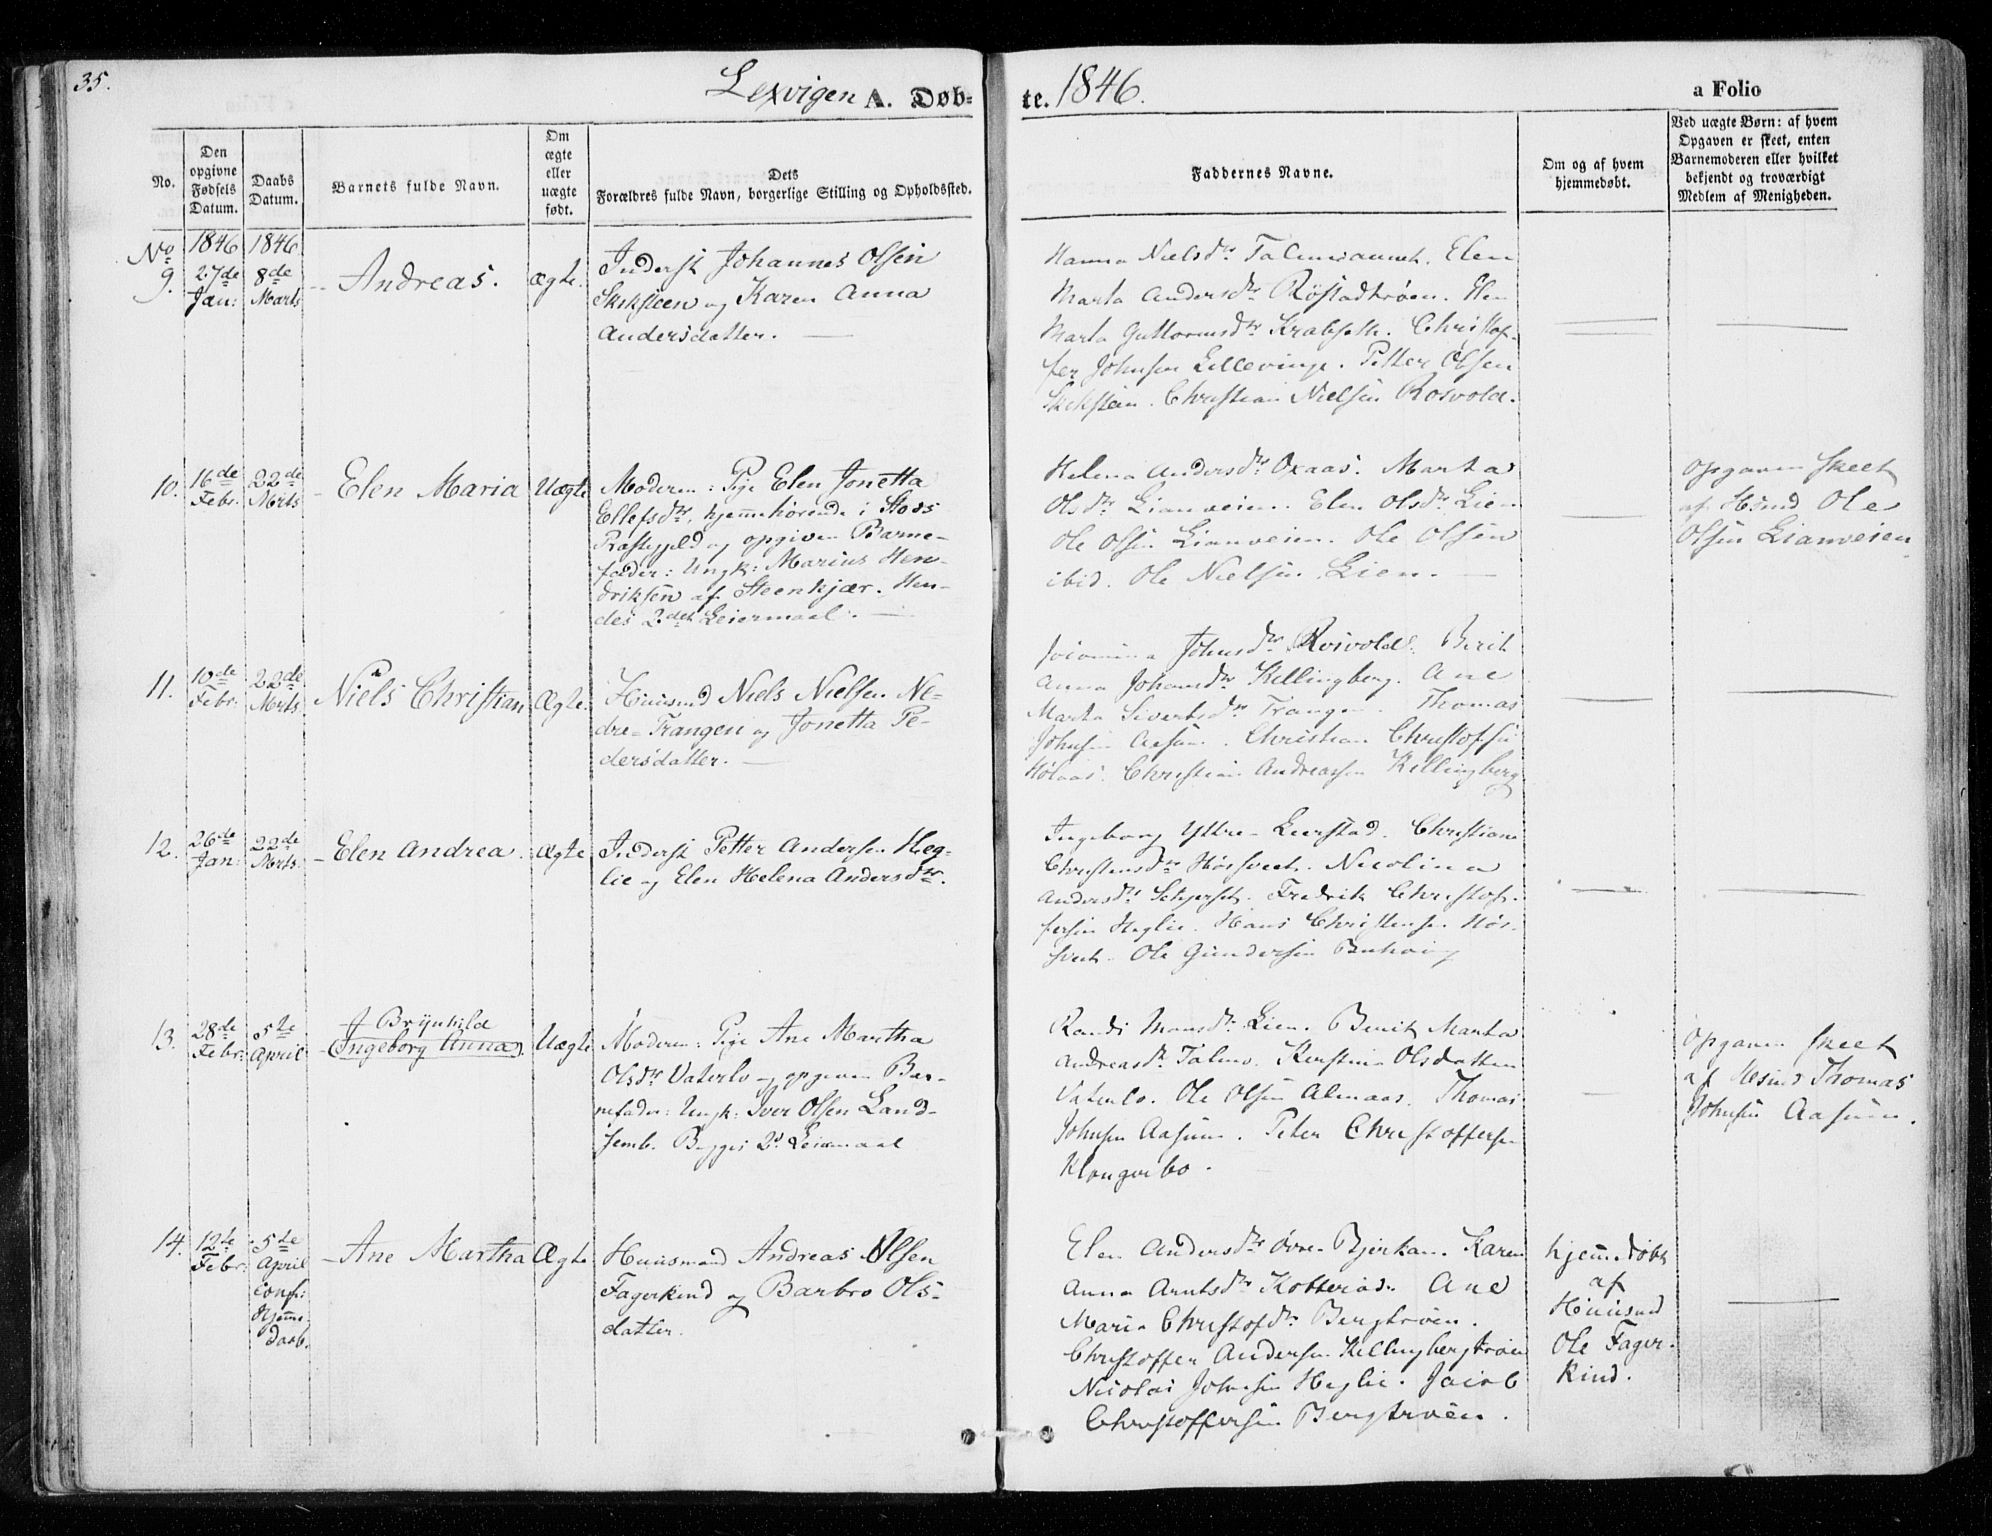 35.
Lexvigen A. Døb=
te. 1846.
a Folio
No.
Den opgivne Fødsels Datum.
Daabs Datum.
Barnets fulde Navn.
Om ægte eller uægte født.
Dets
Forældres fulde Navn, borgerlige Stilling og Opholdssted.
Faddernes Navne.
Om og af hvem hjemmedøbt.
Ved uægte Børn: af hvem
Opgaven er skeet, enten
Barnemoderen eller hvilket
bekjendt og troværdigt
Medlem af Menigheden.
No 1846 1846
9. 27de Jan: 8de Marts
Andreas.
Ægte.
Inderst Johannes Olsen
og Karen Anna
Andersdatter.
Hanna Nielsdr Elen
Marta Andersdr Røstadtrøen. Elen
Marta Guttormsdr Krabseth. Christof-
fer Johnsen Lillevinge. Petter Olsen
Christian Nielsen Rosvold.
10. 16de Febr. 22de Mrts
Elen Maria
Uægte
Moderen: Pige Elen Jonetta
Ellefsdr, hjemmehørende i Stods
Præstegjeld og opgiven Barne-
fader: Ungk: Marius Hen-
driksen af Steenkjær. Hen-
des 2det Leiermaal.
Helena Andersdr Oxaas. Marta
Olsdr Lianveien. Elen Olsdr Lien
Ole Olsen Lianveien. Ole Olsen
ibid. Ole Nielsen Lien.
Opgaven skeet
af Hsmd Ole
Olsen Lianveien
11. 10de Febr. 22de Mrts
Niels Christian
Ægte.
Huusmd Niels Nielsen Ne-
dre-Trangen og Jonetta Pe-
dersdatter.
Johnsdr Rosvold. Berit
Anna Johansdr Killingberg. Ane
Marta Sivertsdr Trangen. Thomas
Johnsen Aasum. Christian Christofsen
Christian Andreassen Killingberg
12. 26de Jan: 22de Mrts
Elen Andrea.
Ægte
Inderst Petter Andersen Heg-
lie og Elen Helena Andersdr.
Ingeborg Yttre- Christiane
Christensdr Nicolina
Andersdr Fredrik Christof-
fersen Heglie. Hans Christensen
Ole Gundersen
13. 28de Febr: 5te April
Brynhild
Ingeborg Anna
Uægte
Moderen: Pige Ane Martha
Olsdr Vaterlo og opgiven Bar-
nefader: Ungk: Iver Olsen Land-
semb. Begges 2d Leiermaal
Randi Monsdr Lien. Berit Marta
Andreasdr Kerstina Olsdatter
Vaterlo. Ole Olsen Almaas. Thomas
Johnsen Aasum. Peter Christoffersen
Klongerbo.
Opgaven skeet
af Hsmd Thomas
Johnsen Aasum.
14. 12te Febr: 5te April conf: Hjemme daab.
Ane Martha
Ægte
Huusmand Andreas Olsen
Fagerkind og Barbro Ols-
datter.
Elen Andersdr Øvre- Karen
Anna Arntsdr Ane
Maria Christofdr Bergtrøen.
Christoffer Andersen Killingbergtrøen
Nicolai Johnsen Heglie. Jacob
Christoffersen Bergtrøen.
hjemmedøbt
af
Huusmd
Ole Fager-
kind.